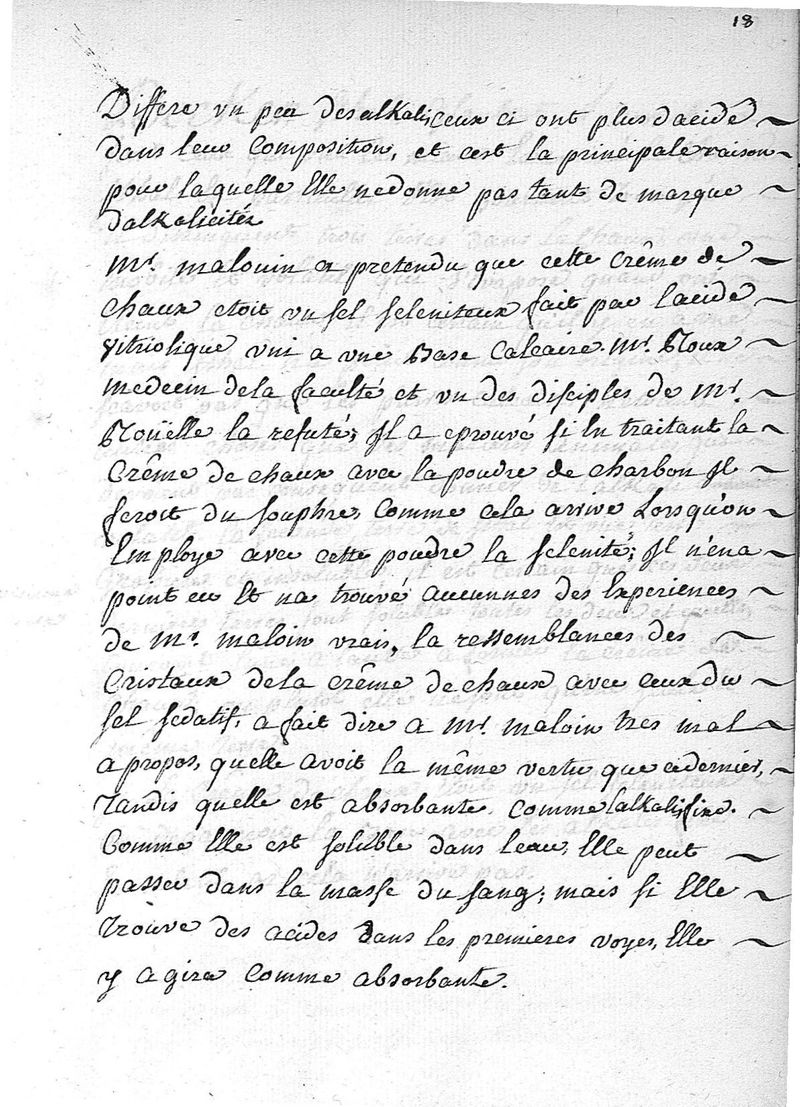 18
Differe un peu des alkali, ceux ci ont plus dacide
dans leur Composition, et cest la principale raison
pour laquelle Elle ne donne pas tant de marque
dalkalicités
Mr. malouin a pretendu que cette Crême de
chaux etoit un sel seleniteux fait par lacide
vitriolique uni a une Base Calcaire. Mr. Roux
medecin de la faculté et un des disciples de Mr.
Roüelle la refuté; Il a eprouvé si En traitant la
Crême de chaux avec la poudre de charbon Il
feroit du souphre, Comme cela arrive Lorsqu'on
Employe avec cette poudre la selenité; Il n'en a
point eu Et na trouvé aucunnes des Experiences
de Mr. maloin vrais, la ressemblances des
Cristaux de la crême de chaux avec ceux du
sel sedatif, a fait dire a Mr. maloin tres mal
a propos, quelle avoit la même vertu que cedernier,
Tandis quelle est absorbante. Comme lalkali fixe.
Comme Elle est soluble dans leau, Elle peut
passer dans la masse du sang; mais si Elle
Trouve des acides dans les premieres voyes, Elle
y agira Comme absorbante.